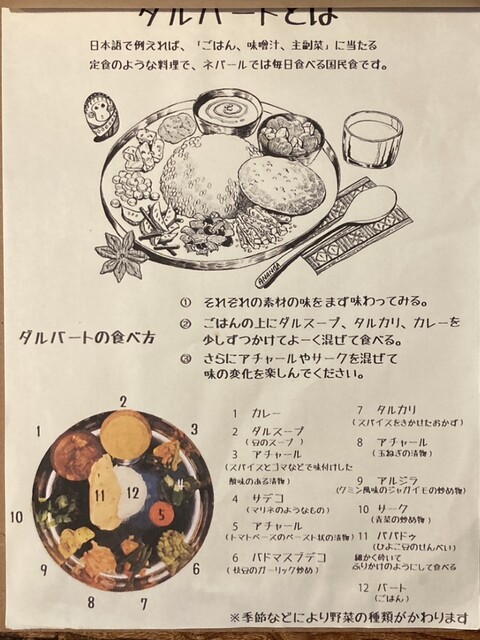 ダルバートとは
日本語で例えれば、「ごはん、味噌汁、主副菜」に当たる
定食のような料理で、ネパールでは毎日食べる国民食です。
ANALUGA
ダルバートの食べ方
① それぞれの素材の味をまず味わってみる。
② ごはんの上にダルスープ、タルカリ、カレーを
少しずつかけてよーく混ぜて食べる。
③ さらにアチャールやサークを混ぜて
味の変化を楽しんでください。
1
2
3
4
5
6
7
8
9
10
11
12
1 カレー
2 ダルスープ
(豆のスープ)
3 アチャール
(スパイスとゴマなどで味付けした
酸味のある漬物)
4 サデコ
(マリネのようなもの)
5 アチャール
(トマトベースのペースト状の漬物)
6 バドマスブデコ
(枝豆のガーリック炒め)
7 タルカリ
(スパイスをきかせたおかず)
8 アチャール
(玉ねぎの漬物)
9 アルジラ
(クミン風味のジャガイモの炒め物)
10 サーク
(青菜の炒め物)
11 パパドゥ
(ひよこ豆のせんべい)
細かく砕いて
ふりかけのようにして食べる
12 バート
(ごはん)
※季節などにより野菜の種類がかわります